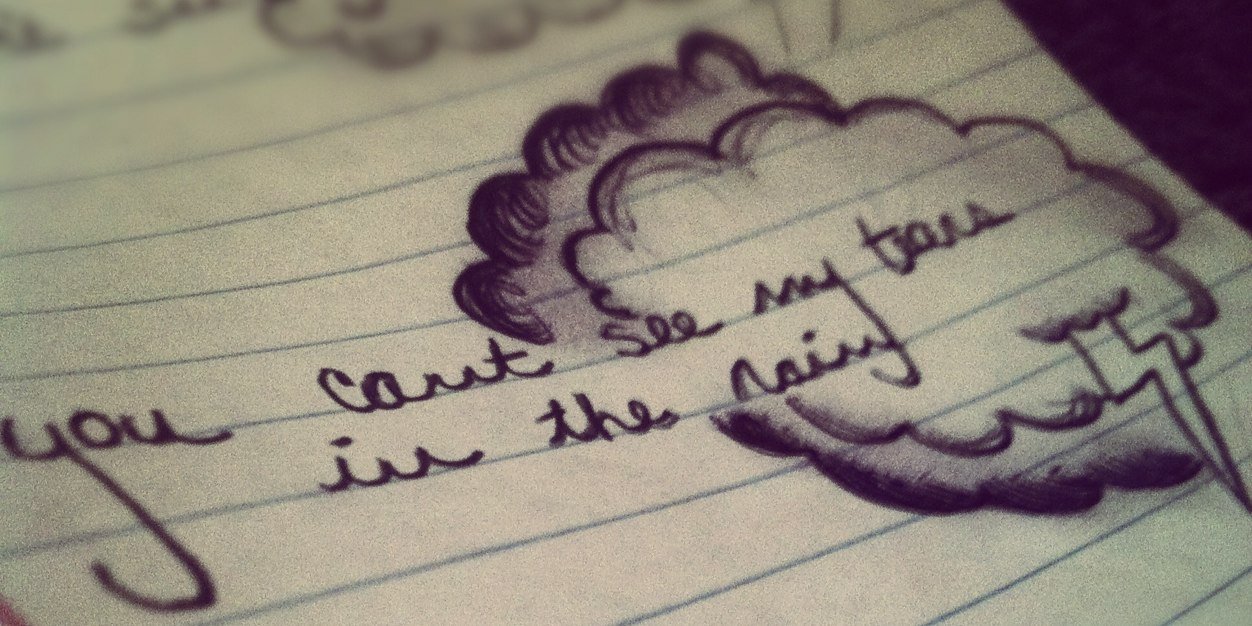 you cant see my tears
in the rain